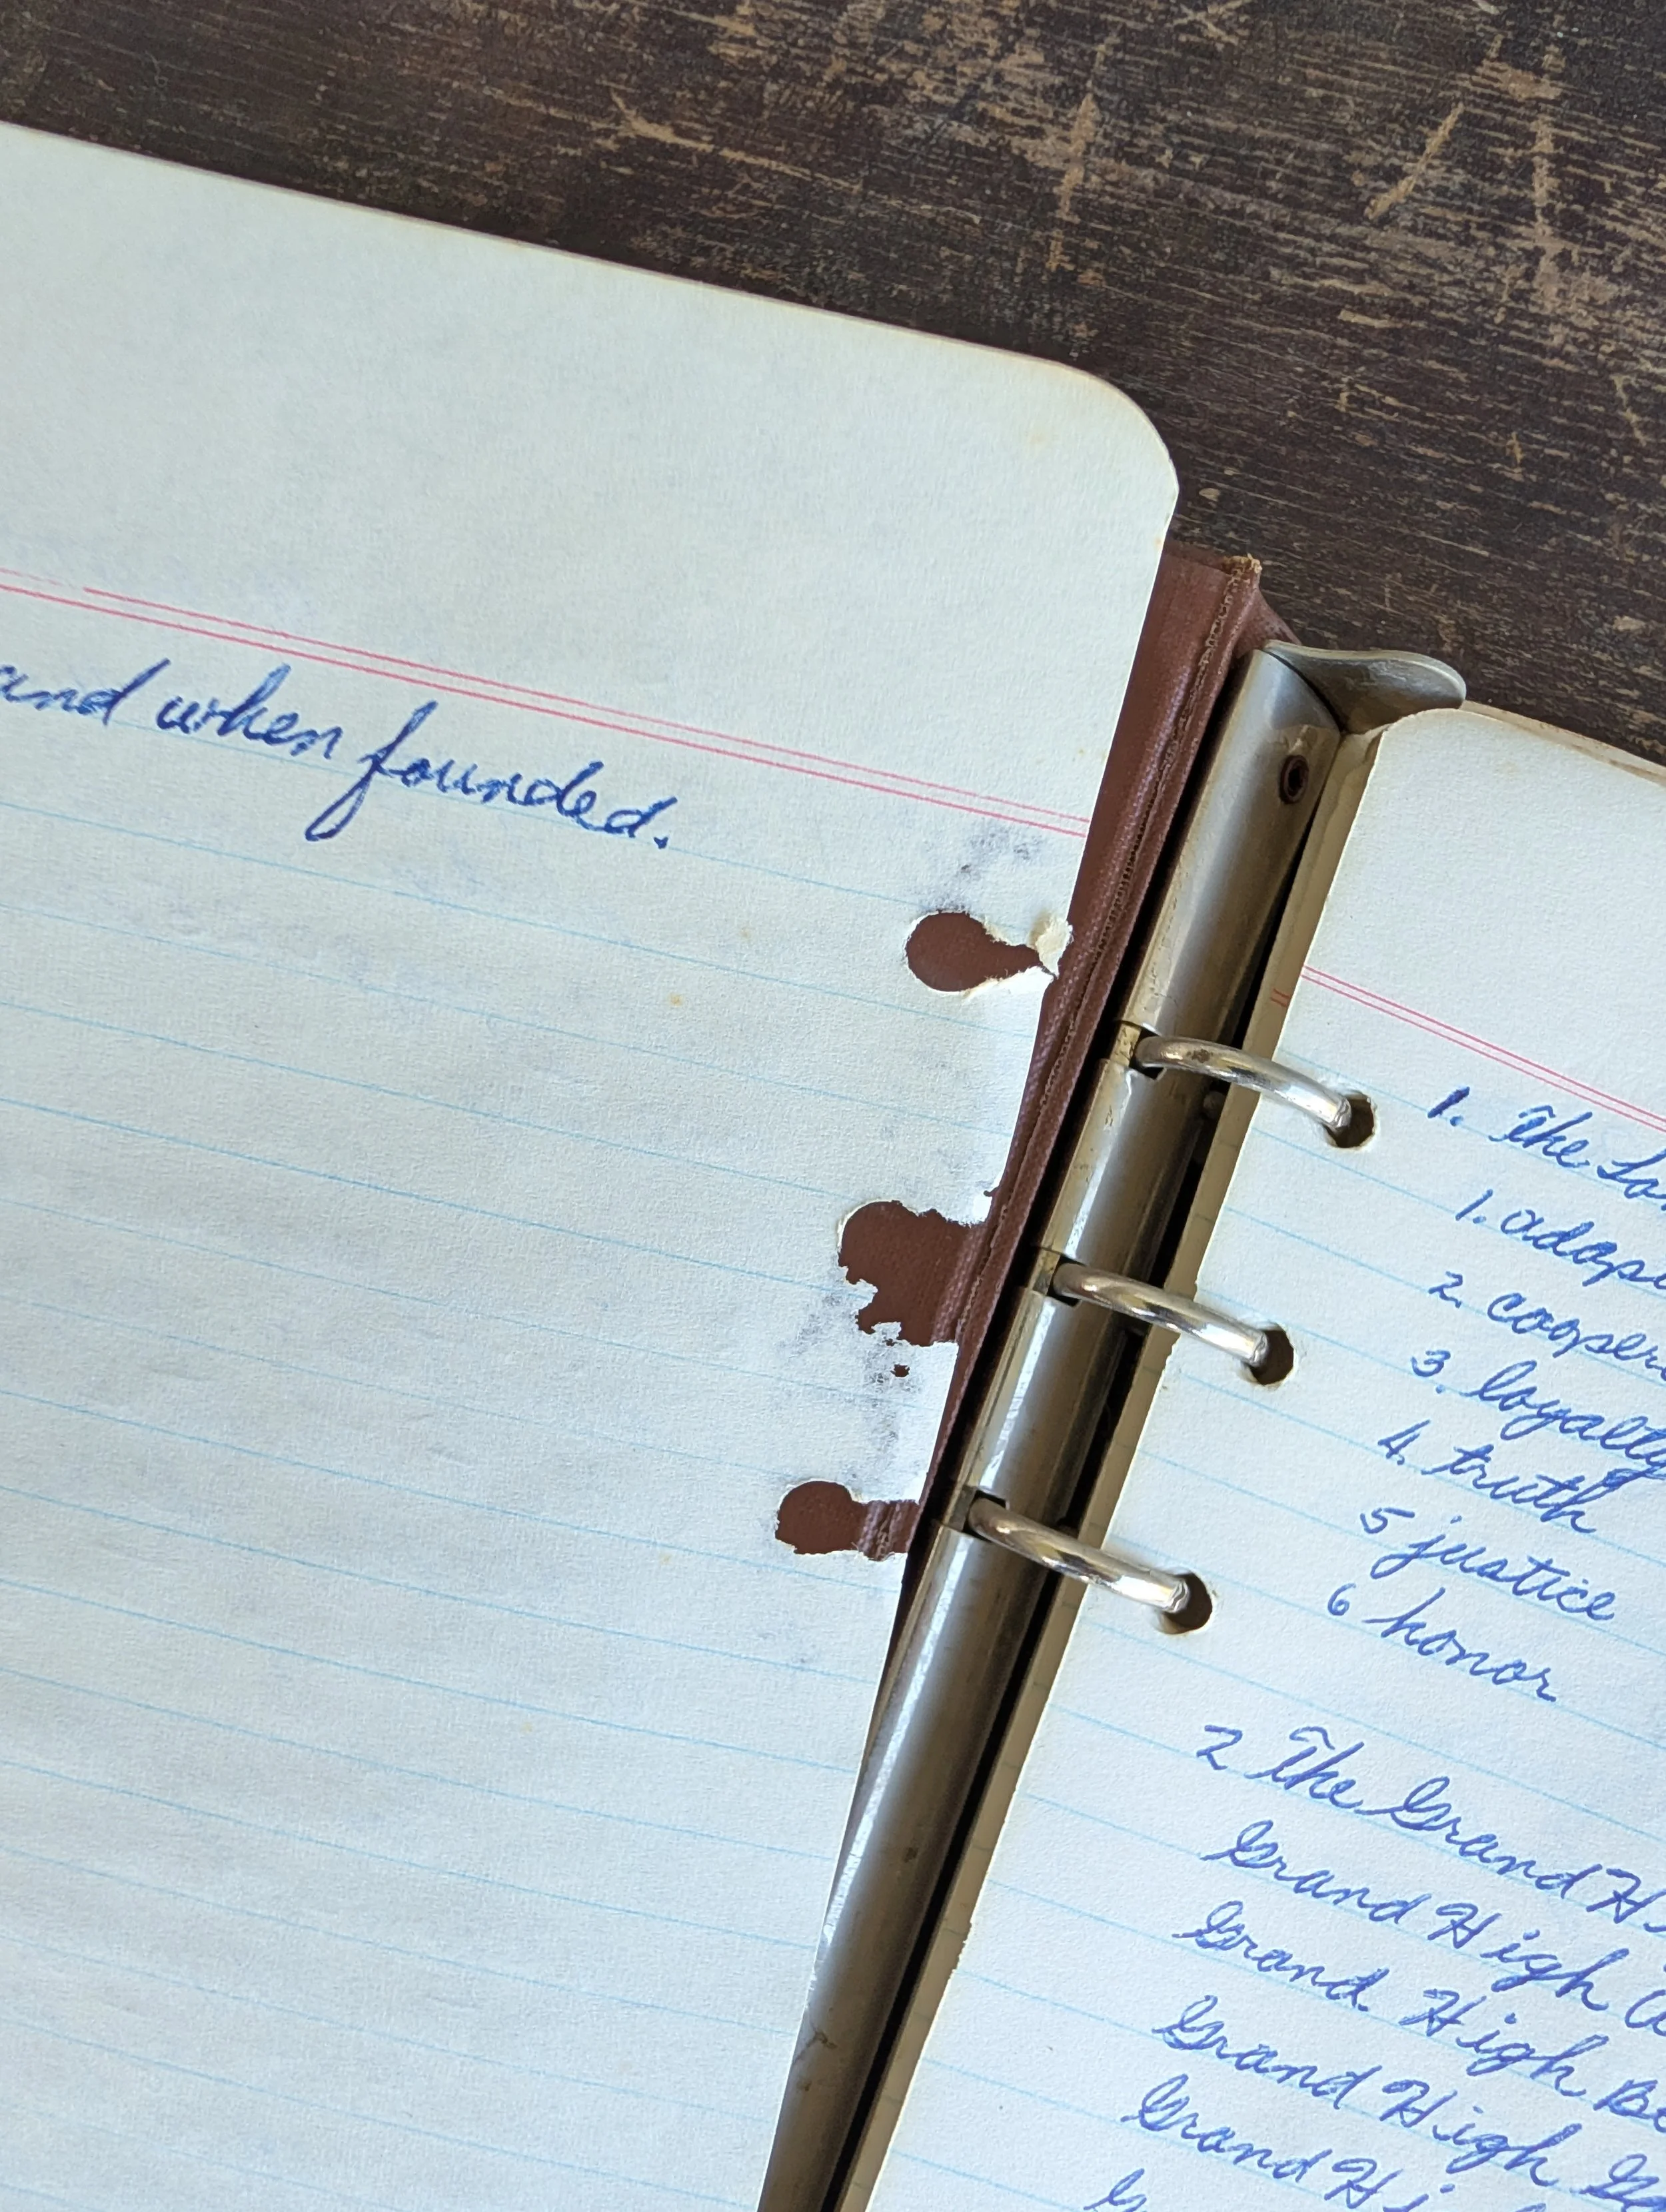 and when founded.
1. The
1. adap
2. cooper
3. loyalty
4. truth
5 justice
6 honor
2 The Grand H
Grand High
Grand High Be
Grand High
Grand Hi